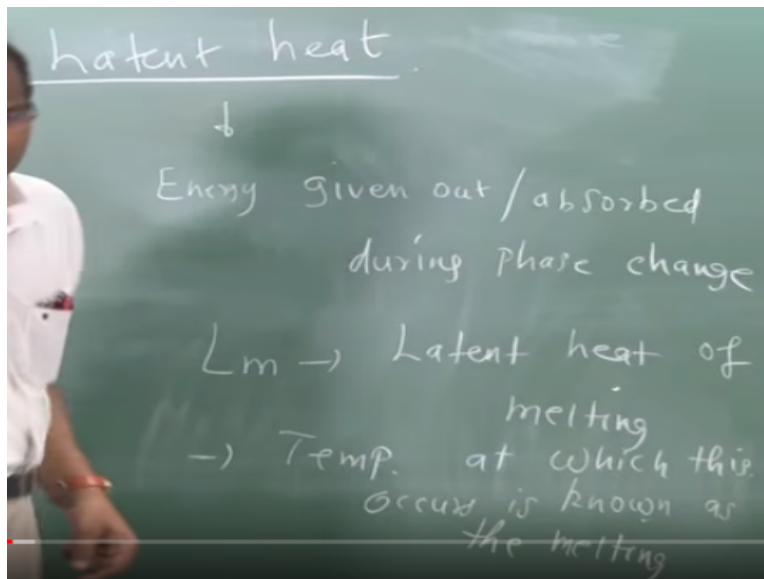 Latent heat
Energy given out / absorbed
during phase change
Lm → Latent heat of
melting
→ Temp. at which this
occurs is known as
the melting